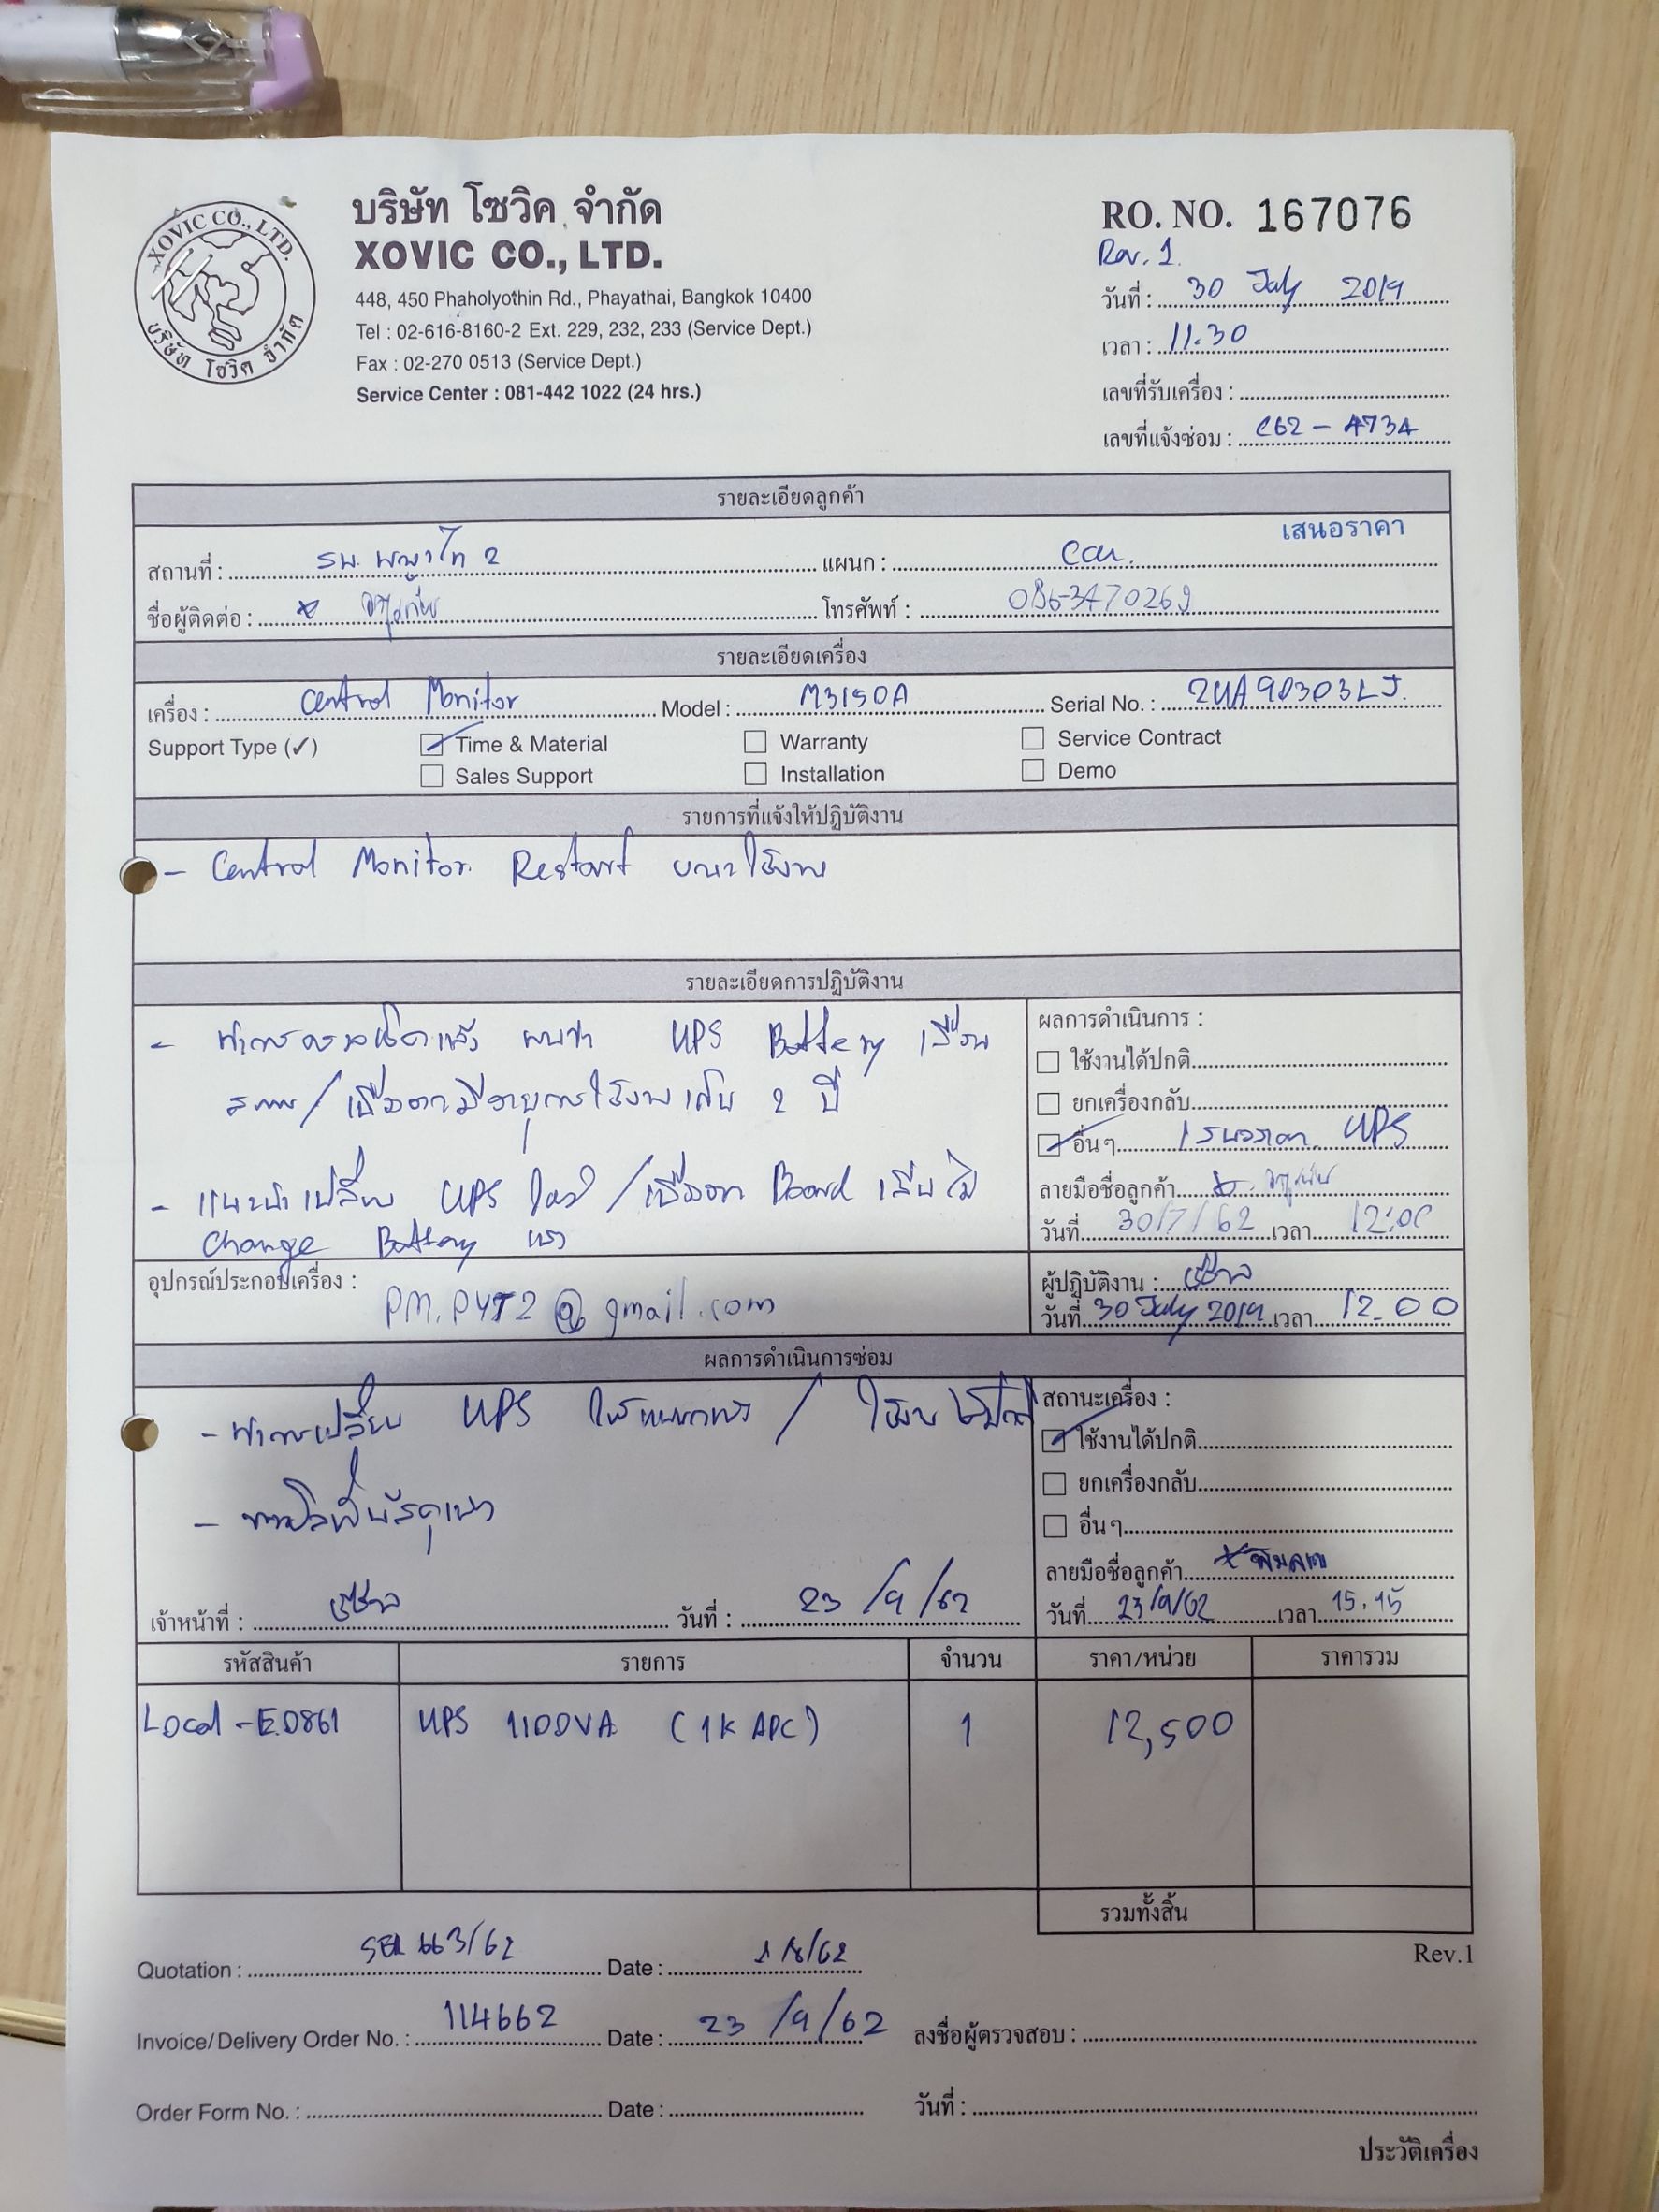 XOVIC CO., LTD.
บริษัท โซวิค จำกัด
บริษัท โซวิค จำกัด
XOVIC CO., LTD.
448, 450 Phaholyothin Rd., Phayathai, Bangkok 10400
Tel : 02-616-8160-2 Ext. 229, 232, 233 (Service Dept.)
Fax : 02-270 0513 (Service Dept.)
Service Center : 081-442 1022 (24 hrs.)
RO. NO. 167076
Rev. 1.
วันที่ : 30 July 2019
เวลา : 11.30
เลขที่รับเครื่อง :
เลขที่แจ้งซ่อม : C62 - 4734
รายละเอียดลูกค้า
เสนอราคา
สถานที่ : รพ. พญาไท 2 แผนก :
ชื่อผู้ติดต่อ : โทรศัพท์ : 086-3470269
รายละเอียดเครื่อง
เครื่อง : Central Monitor Model : M3150A Serial No. : 2UA90303LJ.
Support Type (✓) Time & Material Warranty Service Contract
Sales Support Installation Demo
รายการที่แจ้งให้ปฏิบัติงาน
- Central Monitor Restart ขณะใช้งาน
รายละเอียดการปฏิบัติงาน
- ทำการตรวจเช็คแล้ว พบว่า UPS Battery เสื่อม
สภาพ / เนื่องจากมีอายุการใช้งานเกิน 2 ปี
- แนะนำเปลี่ยน UPS ใหม่ / เนื่องจาก Board เสีย ไม่
Change Battery
ผลการดำเนินการ :
ใช้งานได้ปกติ
ยกเครื่องกลับ
อื่นๆ เสนอราคา UPS
ลายมือชื่อลูกค้า
วันที่ 30/7/62 เวลา 12:00
อุปกรณ์ประกอบเครื่อง : PM.PYT2@gmail.com
ผู้ปฏิบัติงาน :
วันที่ 30 July 2019 เวลา 12.00
ผลการดำเนินการซ่อม
- ทำการเปลี่ยน UPS ให้ / ใช้งานได้ปกติ
สถานะเครื่อง :
ใช้งานได้ปกติ
ยกเครื่องกลับ
อื่นๆ
ลายมือชื่อลูกค้า
วันที่ 23/9/62 เวลา 15.15
เจ้าหน้าที่ : วันที่ : 23/9/62
รหัสสินค้า รายการ จำนวน ราคา/หน่วย ราคารวม
Local-E0861 UPS 1100VA (1K APC) 1 12,500
รวมทั้งสิ้น
Rev.1
Quotation : SER 663/62 Date : 1/8/62
Invoice/Delivery Order No. : 114662 Date : 23/9/62 ลงชื่อผู้ตรวจสอบ :
Order Form No. : Date : วันที่ :
ประวัติเครื่อง